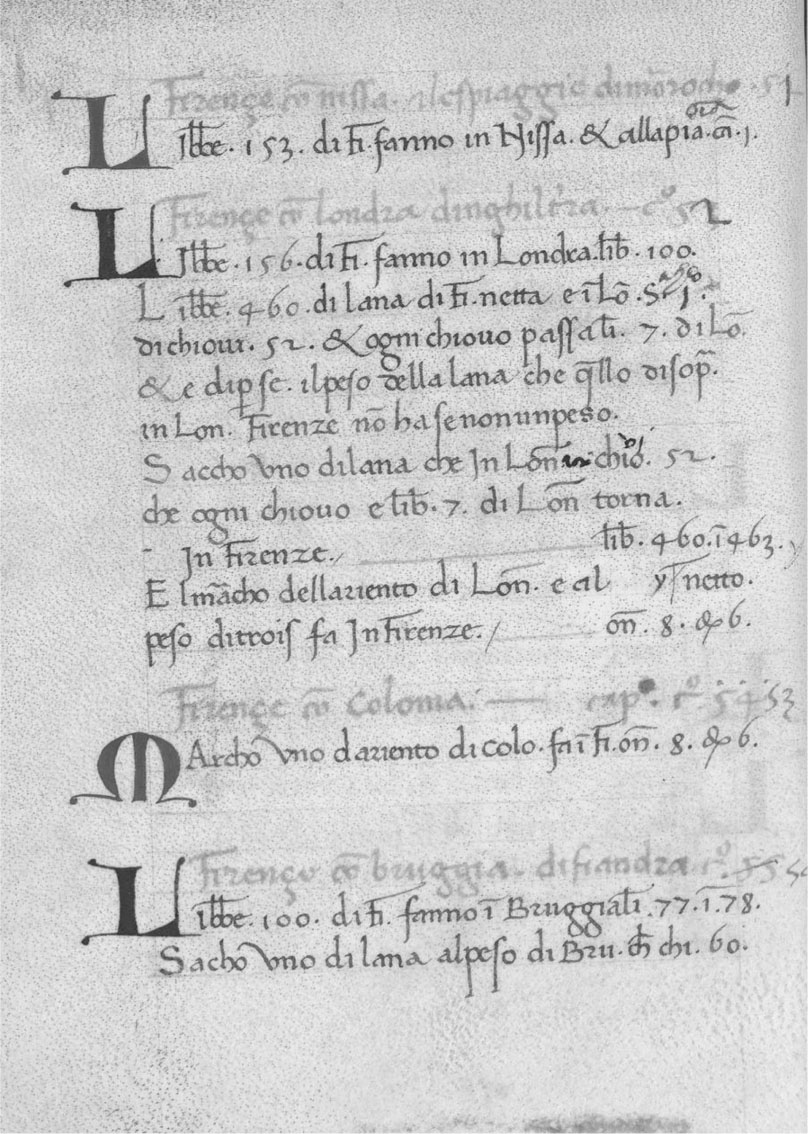 Firençe cō nissa. ilespiaggie
L ibbe. 153. di fi. fanno in Nissa. & alla pia. cā. 1.
Firençe cō londra dinghilt'ra. — c°. 52
L Jbbe. 156. di fi. fanno in Londra. lib. 100.
Libbe. 460. di lana di fi. netta e ī Lō.
di chiovi. 52. & ogni chiovo passa li. 7. di Lō.
& e dip se. ilpeso della lana che q̄llo disop̄.
in Lon. Firenze nō ha senonunpeso.
Saccho vno dilana che Jn Lōn chiō. 52.
che ogni chiovo e lib. 7. di Lōn torna.
Jn Firenze. lib. 460. ī 463.
E lmācho dellariento di Lōn. e al netto.
peso ditrois fa Jn Firenze. ōn. 8. & 6.
Firençe cō Colonia. — cap°. c°. 54 53
M Archō vno dariento di colo. fa ī fi. ōn. 8. & 6.
Firençe cō bruggia. difiandra c°. 55
L ibbe. 100. di fi. fanno ī Bruggia li. 77. ī. 78.
Sachō vno di lana alpeso di Bru. ch̄ chi. 60.